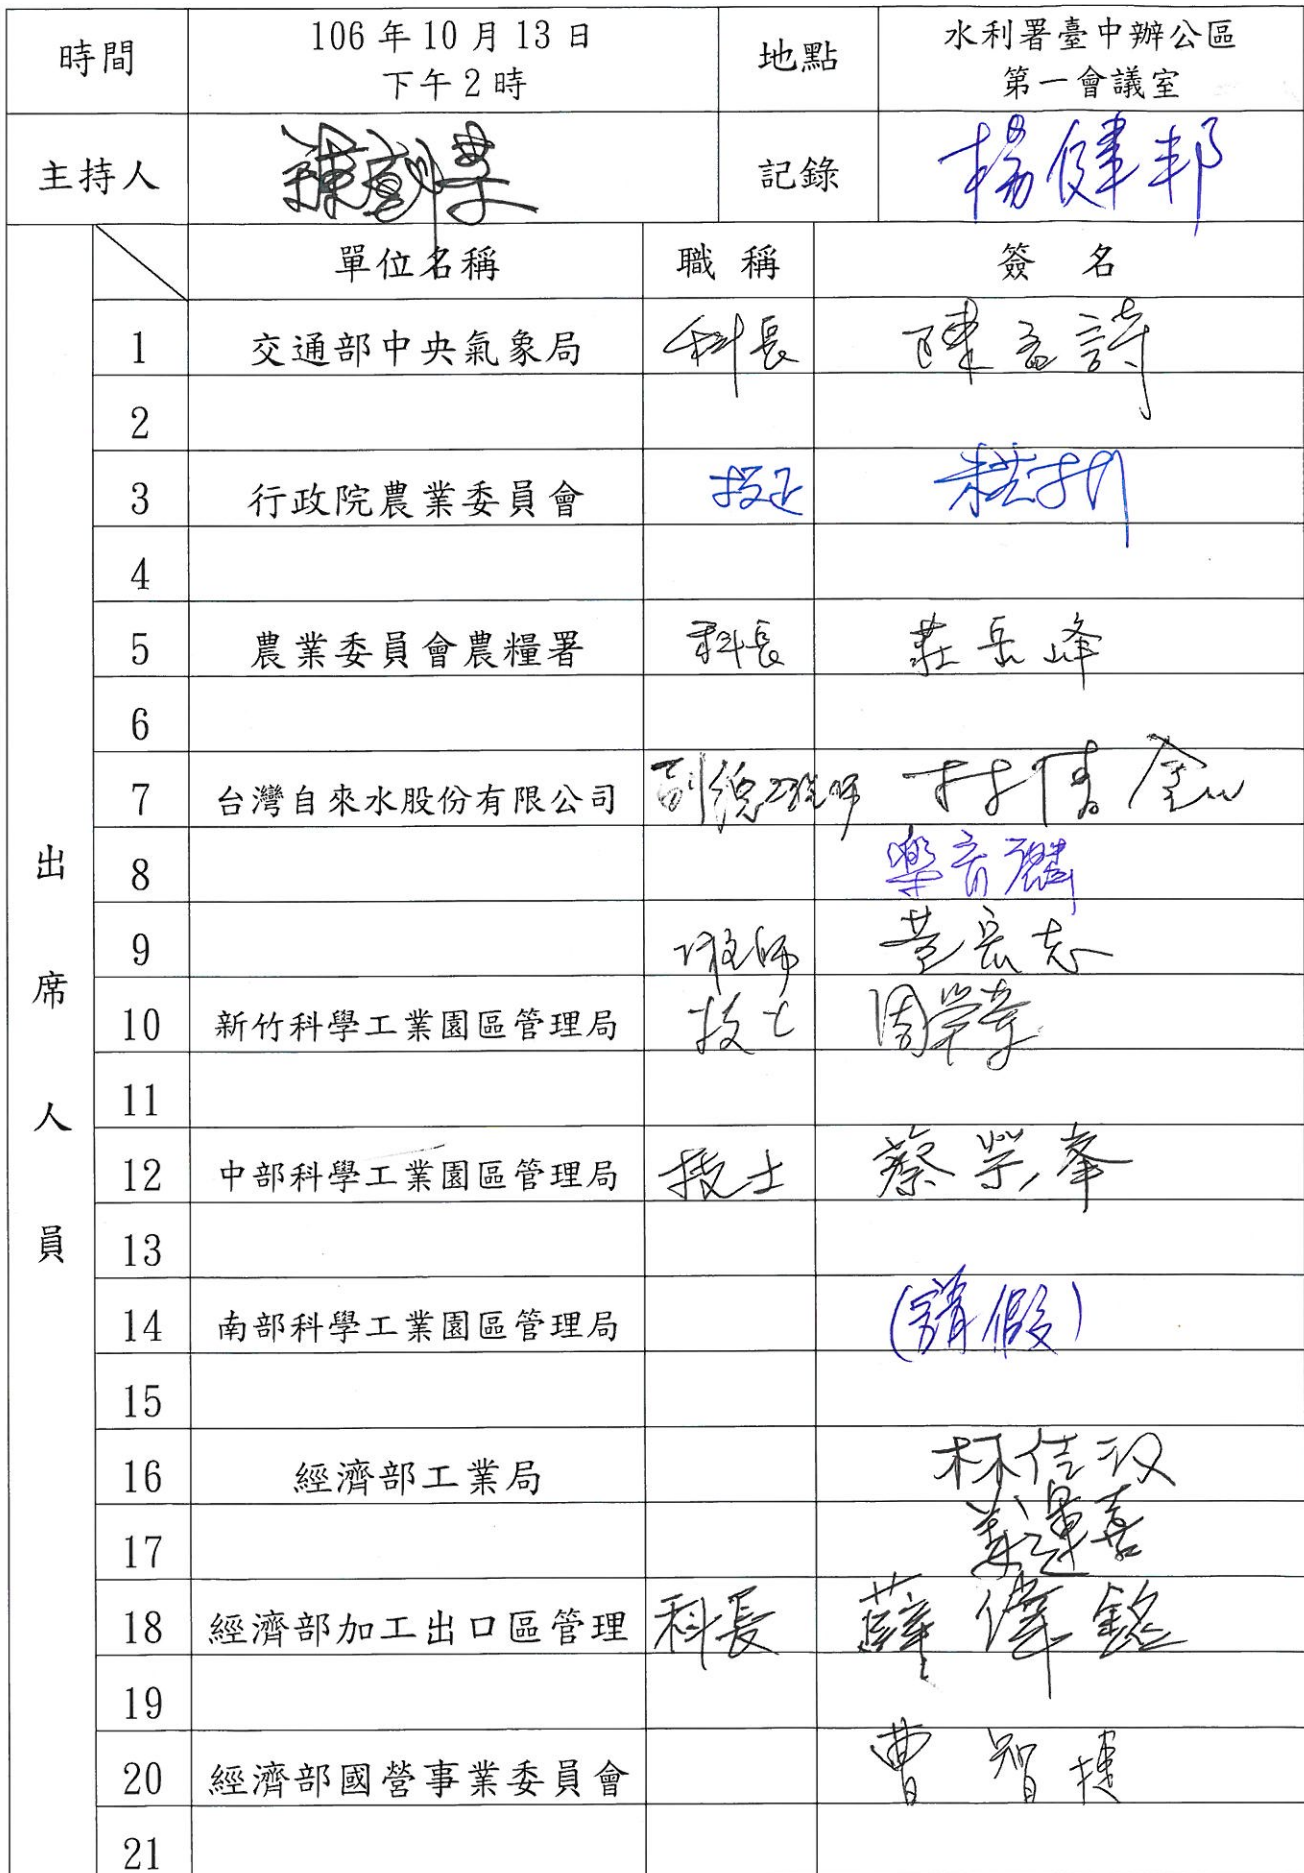 時間 106年10月13日 下午2時 地點 水利署臺中辦公區 第一會議室
主持人 記錄 楊健邦
單位名稱 職稱 簽名
出席人員
1 交通部中央氣象局 科長 陳孟詩
2
3 行政院農業委員會 技正
4
5 農業委員會農糧署 科長 莊岳峰
6
7 台灣自來水股份有限公司 副總工程師
8
9
10 新竹科學工業園區管理局 技士 周榮華
11
12 中部科學工業園區管理局 技士 蔡榮峯
13
14 南部科學工業園區管理局 (請假)
15
16 經濟部工業局
17 姜運喜
18 經濟部加工出口區管理 科長 薛偉銘
19
20 經濟部國營事業委員會 曹智捷
21